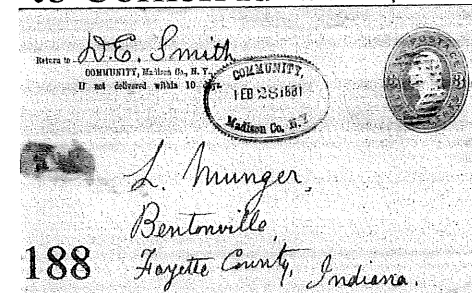 Return to D.E. Smith
COMMUNITY, Madison Co., N. Y.,
If not delivered within 10 days.
COMMUNITY,
FEB 28 1881
Madison Co. N.Y
POSTAGE
L. Munger,
Bentonville,
Fayette County, Indiana.
188